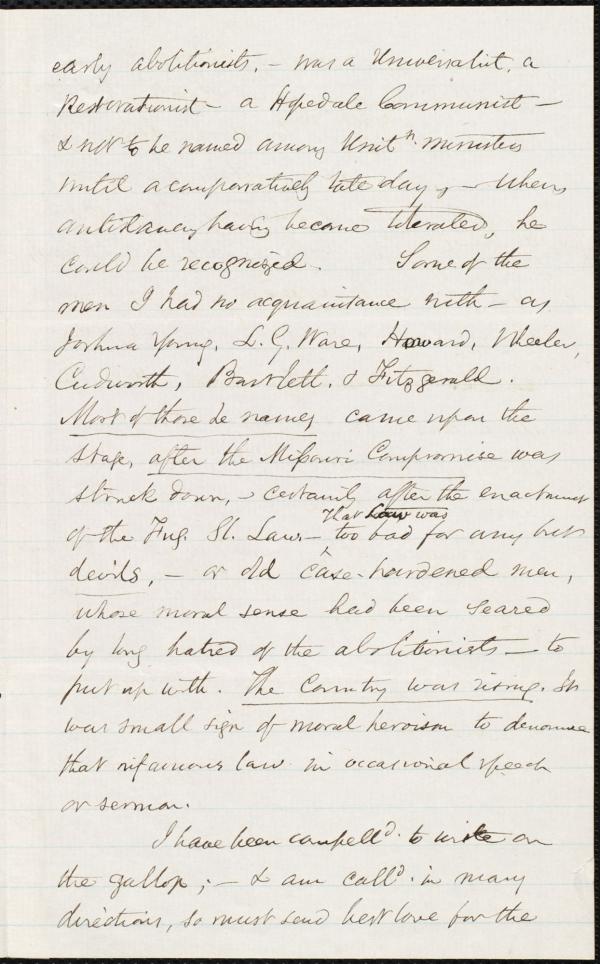 early abolitionists, - was a Universalist, a
Restorationist - a Hopedale Communist -
& not to be named among Unitn. ministers
until a comparatively late day, - when,
antislavery having become tolerated, he
could be recognized. Some of the
men I had no acquaintance with - as
Joshua Young, L. G. Ware, Howard, Wheeler,
Cudworth, Bartlett, & Fitzgerald.
Most of those he names came upon the
stage, after the Missouri Compromise was
struck down, & certainly after the enactment
of the Fug. Sl. Law. - That Law was too bad for any but
devils, - or old case-hardened men,
whose moral sense had been seared
by long hatred of the abolitionists - to
put up with. The Country was rising. It
was small sign of moral heroism to denounce
that infamous law in occasional speech
or sermon.
I have been compelld. to write on
the gallop; - & am calld. in many
directions, so must send best love for the